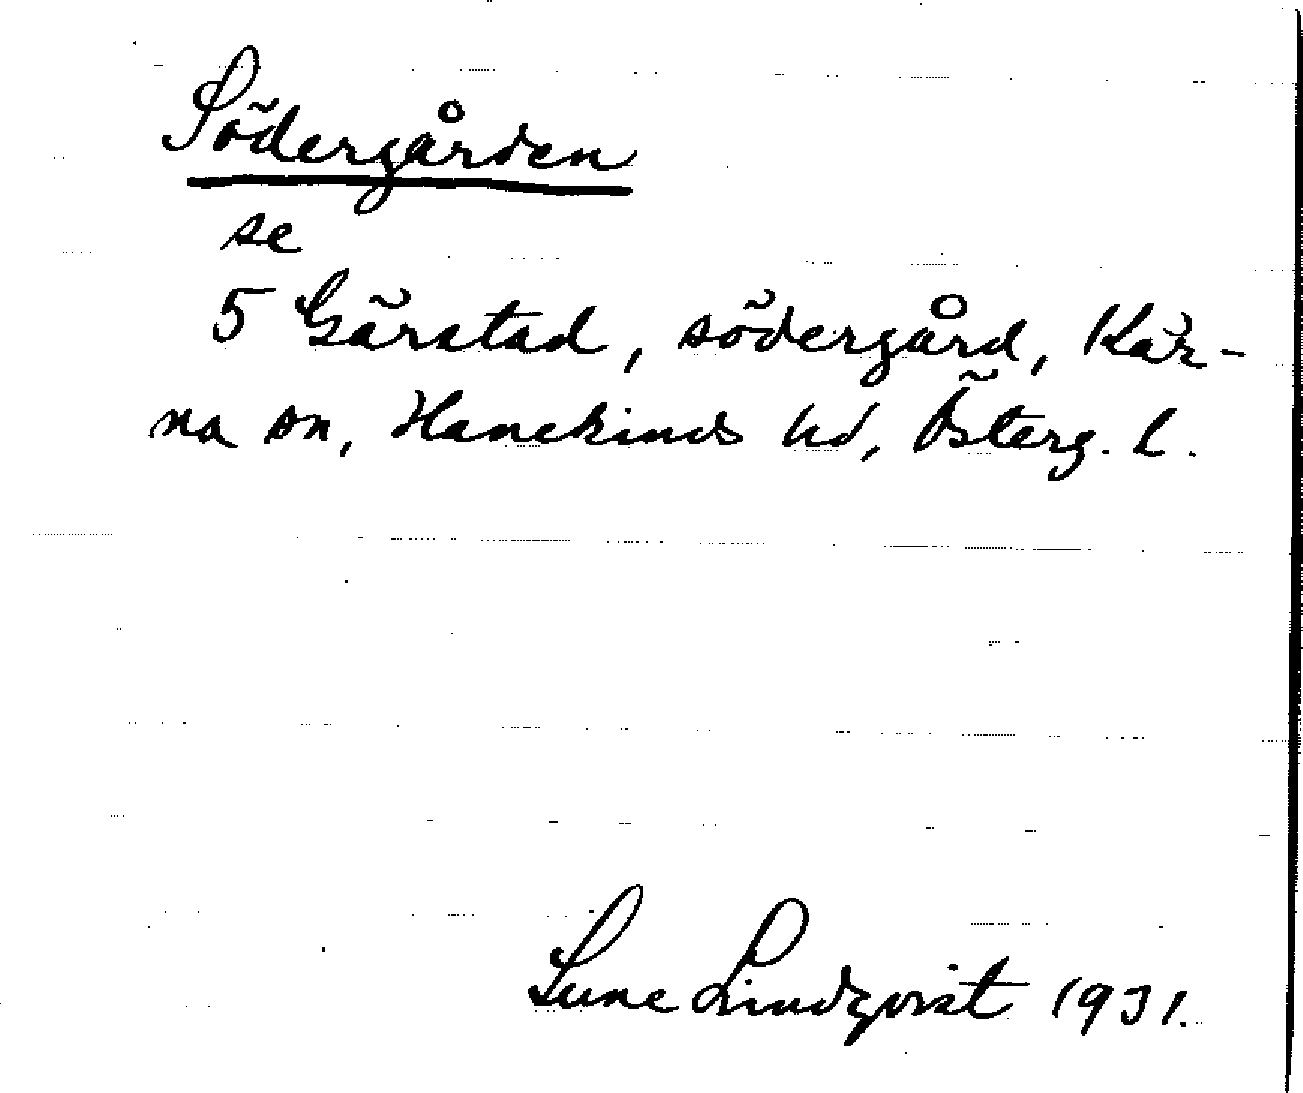 Södergården
se
5 Gärstad, södergård, Kär-
na sn, Hanekinds hd, Österg. L.
Sune Lindqvist 1931.